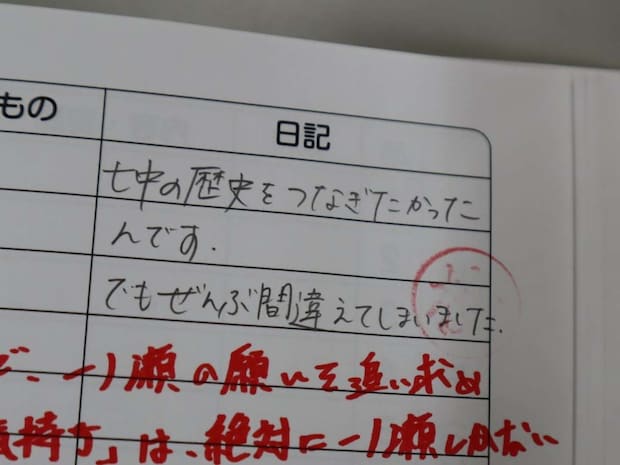 もの
日記
七中の歴史をつなぎたかった
んです.
でもぜんぶ間違えてしまいました.
で、一ノ瀬の願いを追い求め
気持ち」は、絶対に一ノ瀬しかない